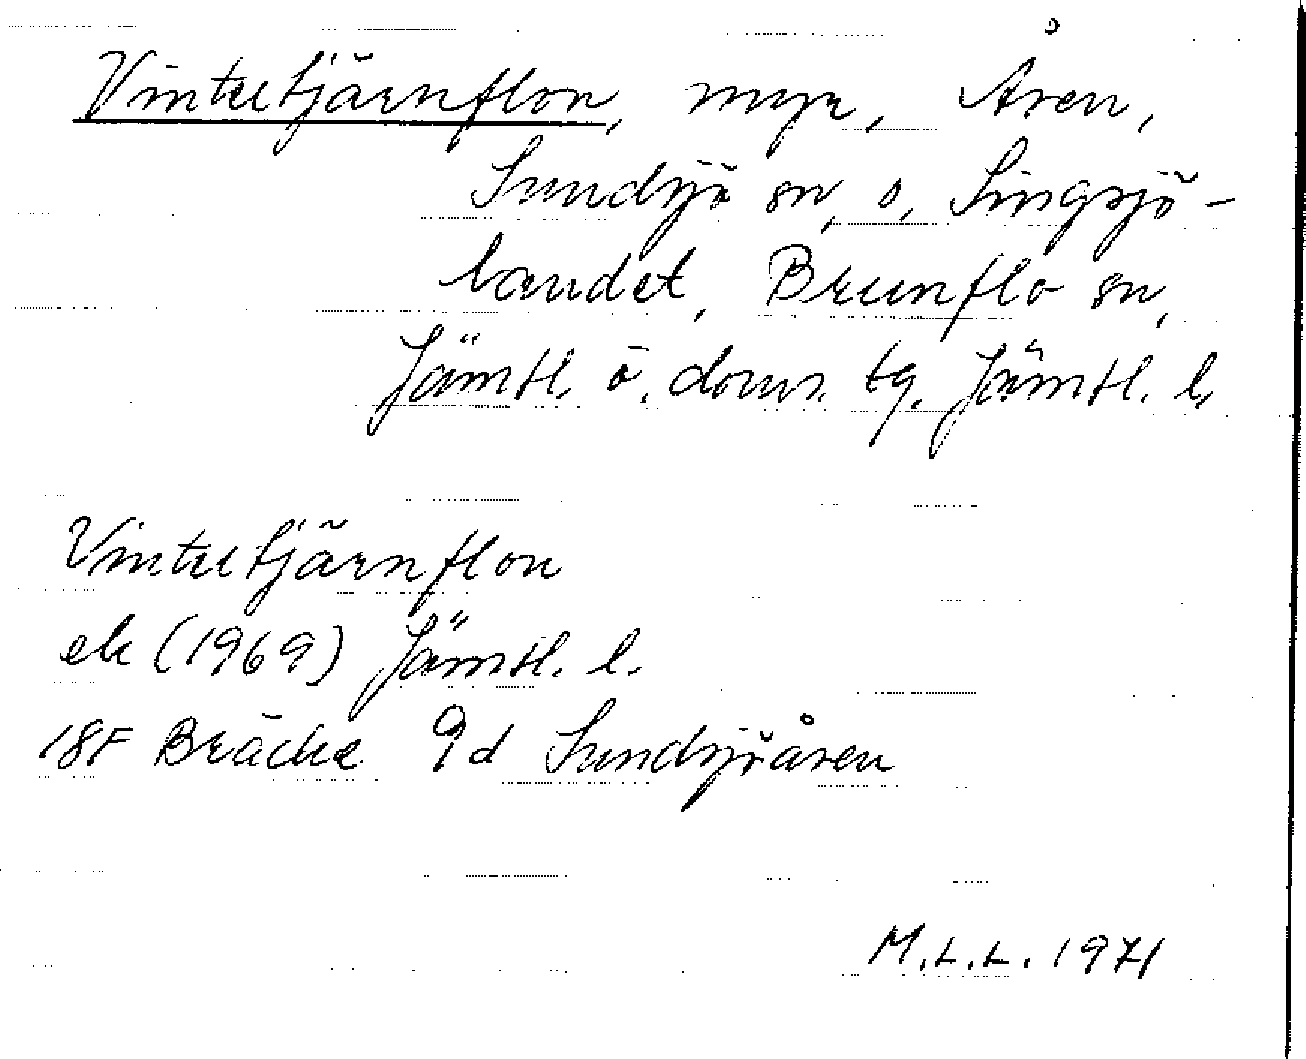 Vintertjärnflon, myr, Åren,
Sundsjö sn, o. Singsjö-
landet, Brunflo sn,
Jämtl. ö. doms. tg. Jämtl. l.
Vintertjärnflon
ek (1969) Jämtl. l.
18F Bräcke 9d Sundsjöåsen
M.L.L. 1971